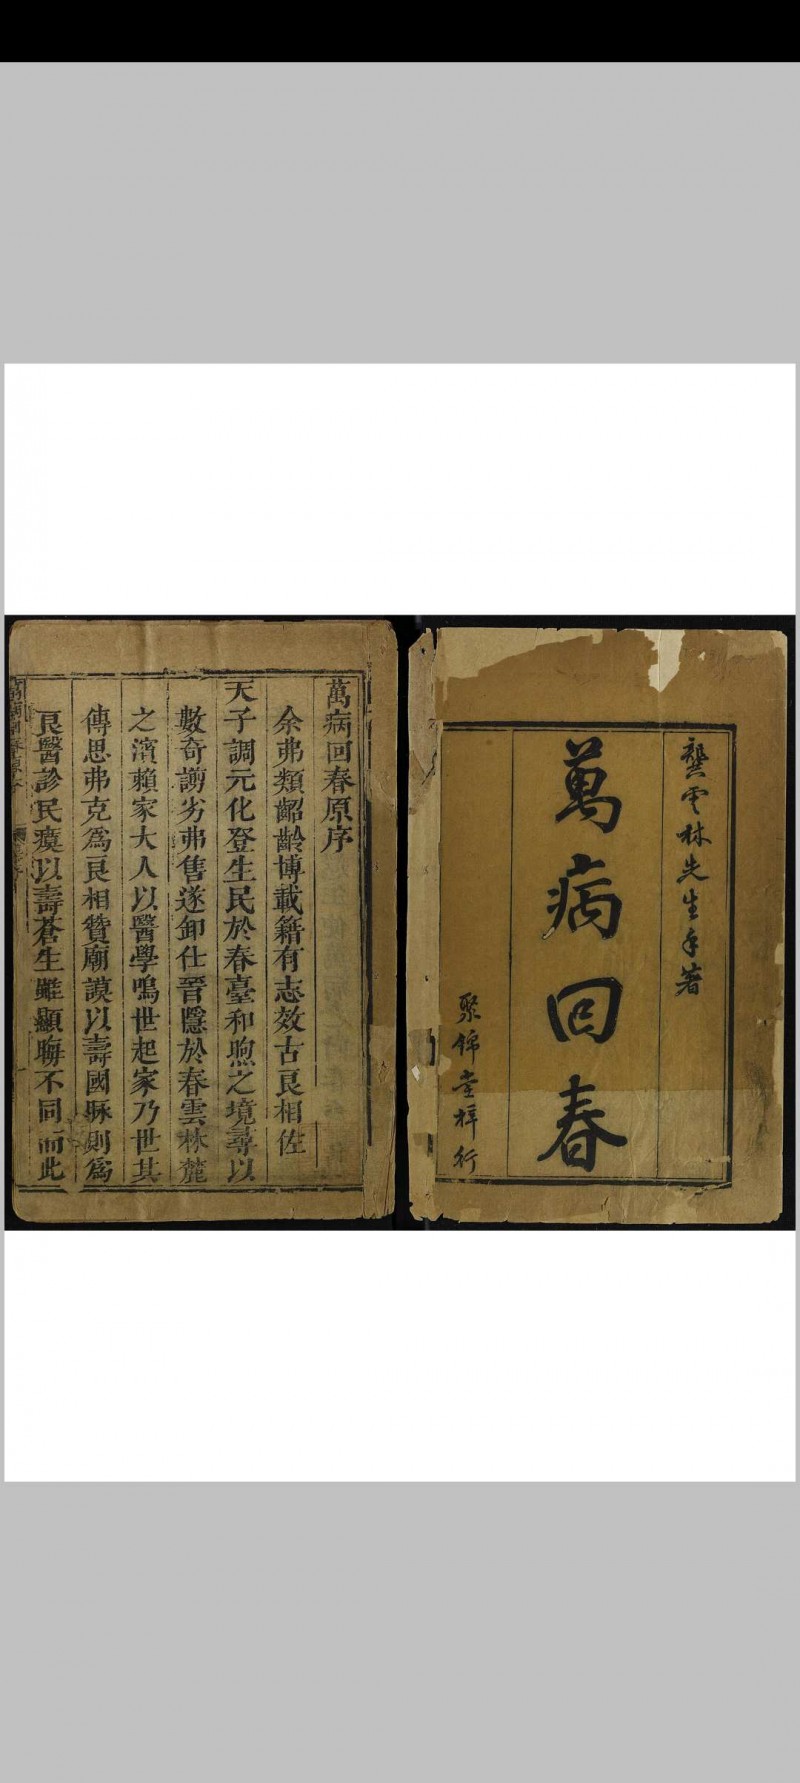 龔雲林先生手著
萬病回春
聚錦堂梓行
萬病回春原序
余弗類齠齡博載籍有志效古良相佐
天子調元化登生民於春臺和煦之境尋以
數奇謭劣弗售遂卸仕晉隱於春雲林麓
之濱賴家大人以醫學鳴世起家乃世其
傳思弗克為良相贊廟謨以壽國脈則為
良醫診民瘼以壽蒼生雖顯晦不同而此